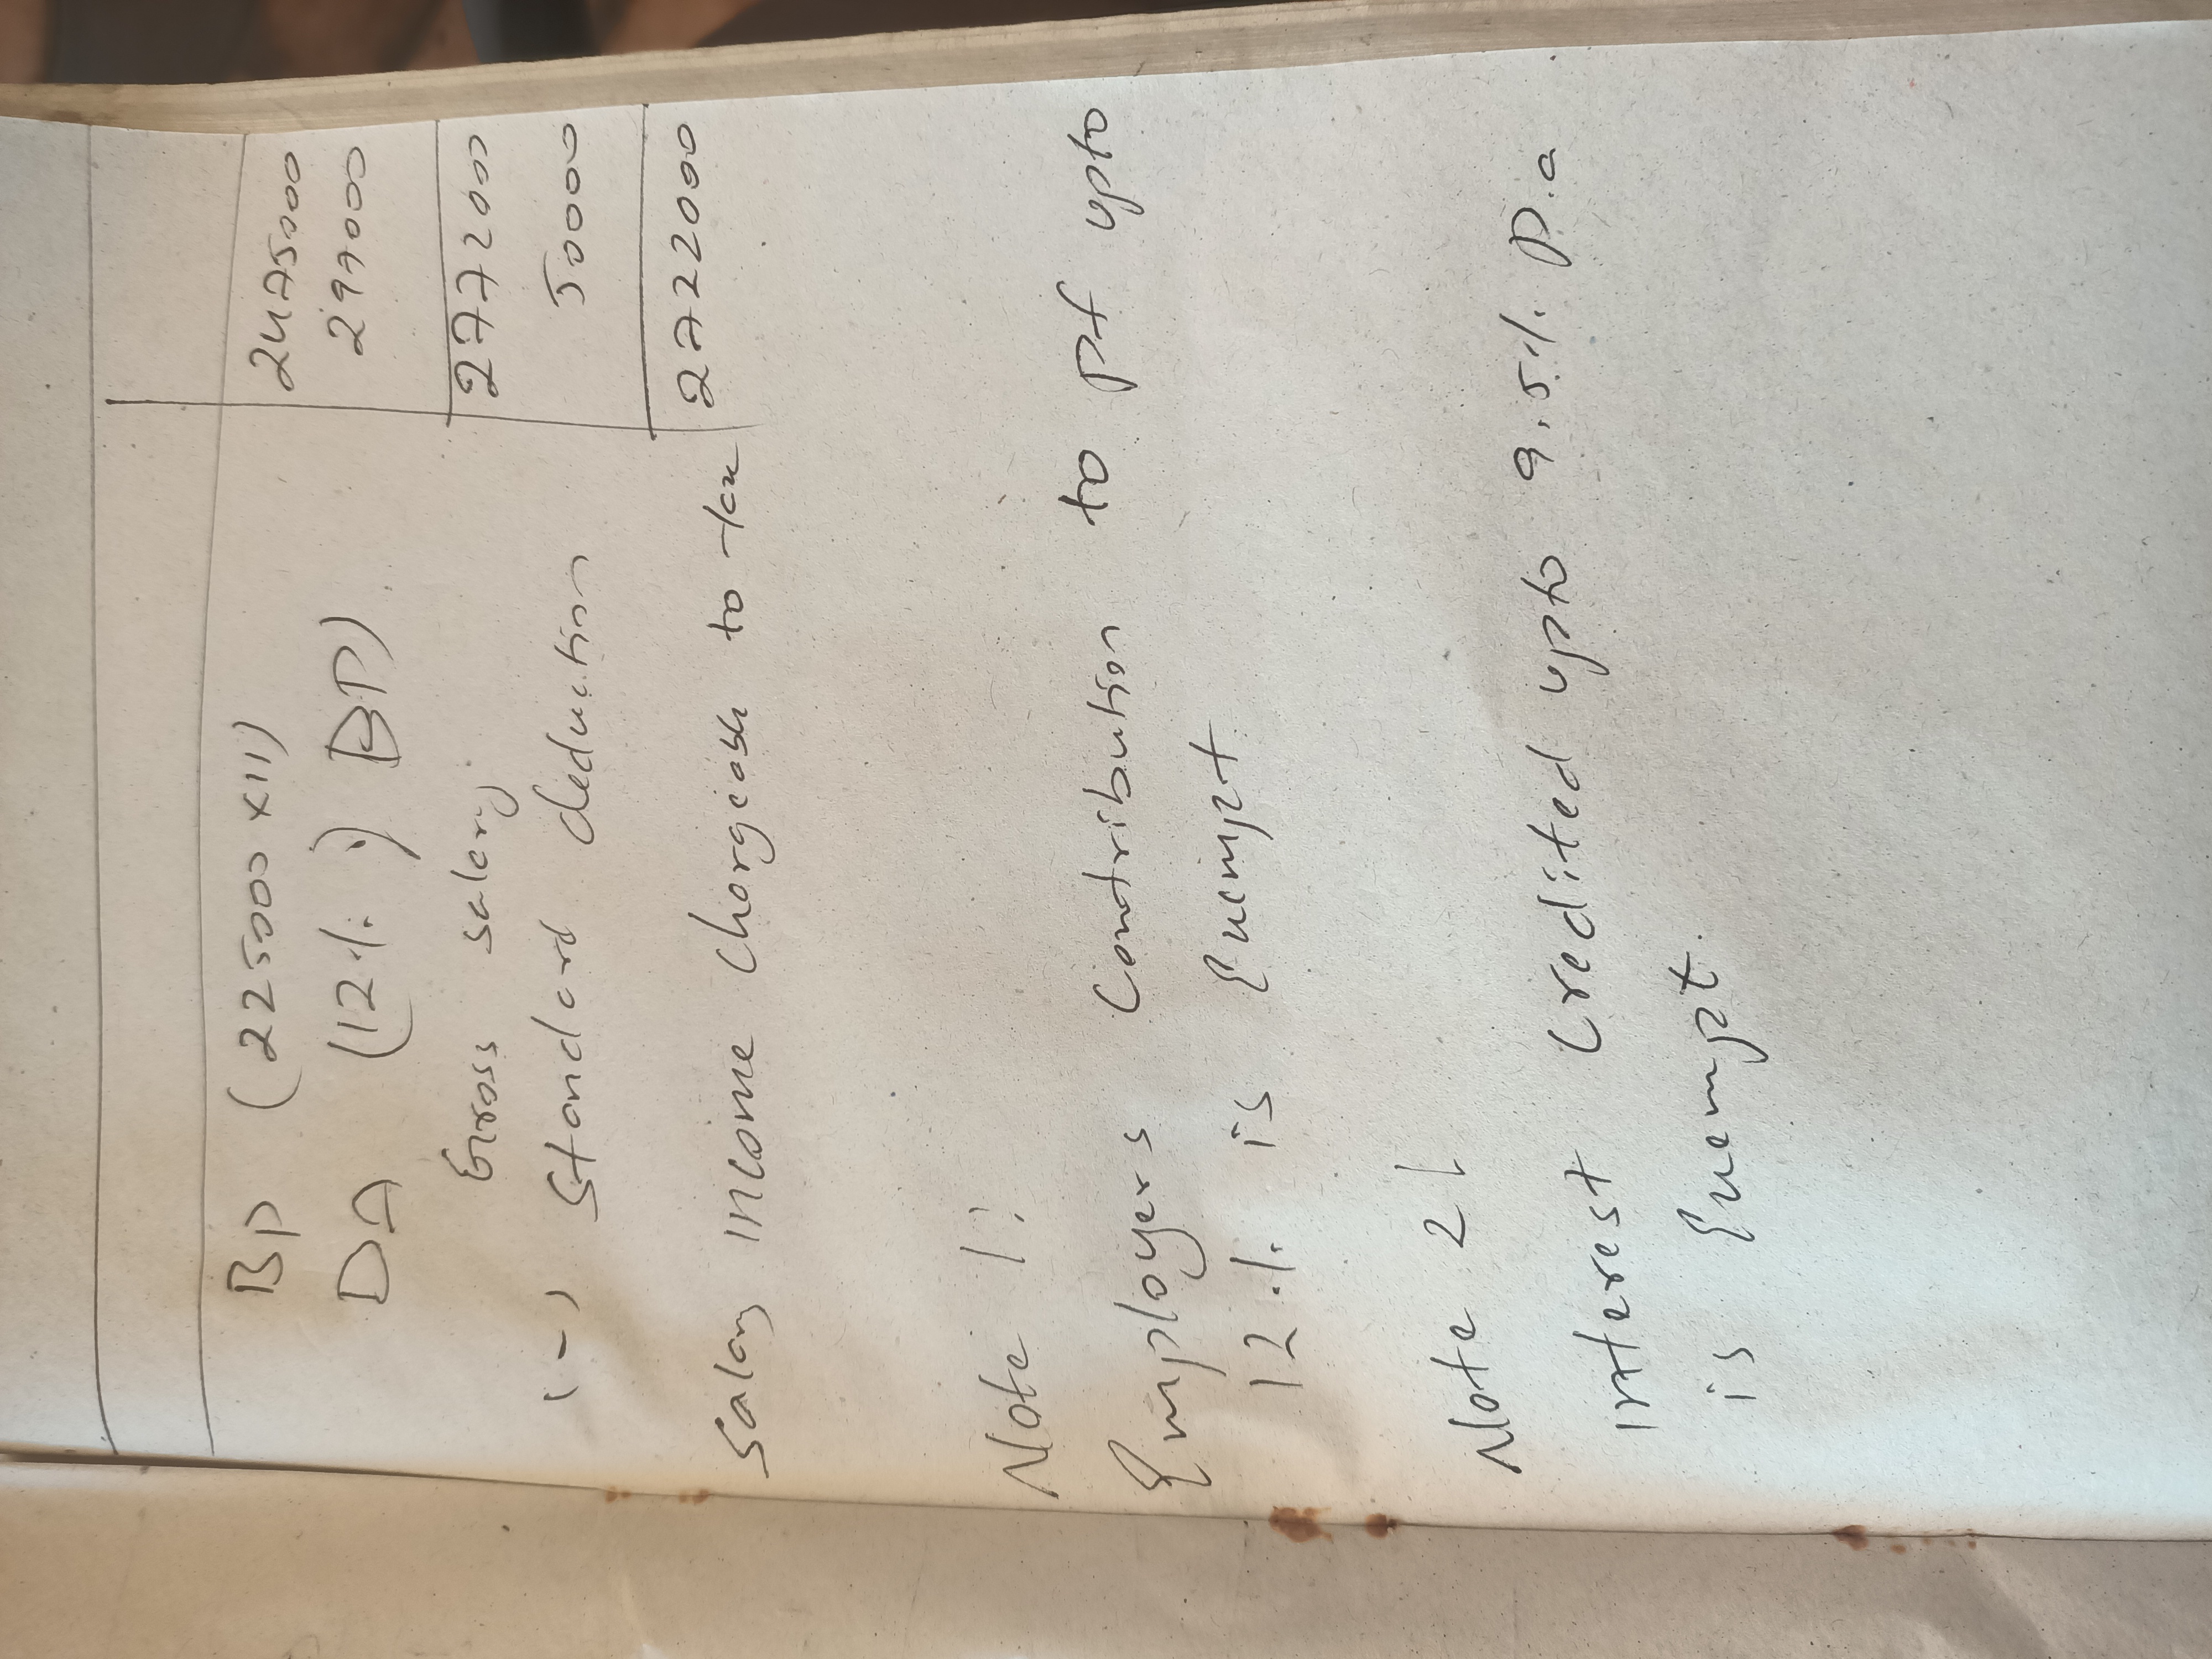 BP (225000 x 11) 2475000
DA (12%) BP) 297000
Gross salary 2772000
(-) Standard deduction 50000
Salary income chargeable to tax 2722000
Note 1:
Employers Contribution to PF upto
12% is Exempt
Note 2:
Interest Credited upto 9.5% p.a
is Exempt.